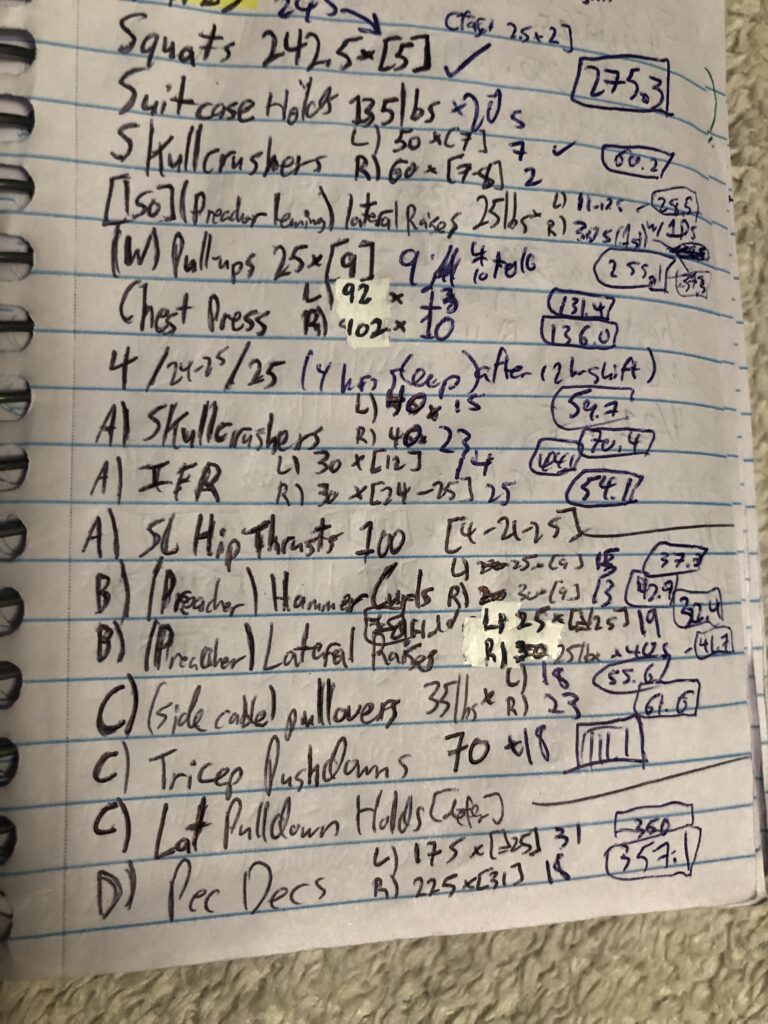 245
Squats 242.5 × [5] ✓
275.3
Suitcase Holds 135lbs × 20s
Skullcrushers L) 50 × [7] 7 ✓
R) 60 × [7-8] 2
60.2
[ISO] (Preacher leaning) lateral Raises 25lbs × L)
R)
(W) Pull-ups 25 × [9] 9
Chest Press L) 92 × 13 131.4
R) 102 × 10 136.0
4/24-25/25 (4 hrs sleep) after 12 hr shift)
A) Skullcrushers L) 40 × 15 59.7
R) 40 × 23 70.4
A) IFR L) 30 × [12] 14
R) 30 × [24-25] 25 54.1
A) SL Hip Thrusts 100 [4-21-25]
B) (Preacher) Hammer Curls L) 25 × [9] 15 37.3
R) 30 × [9] 13 42.9
B) (Preacher) Lateral Raises L) 25 × 19 32.4
R) 25lbs × 41.7
C) (side cable) pullovers 35lbs × L) 18 55.6
R) 23 61.6
C) Tricep Pushdowns 70 × 18 111.1
C) Lat Pulldown Holds [defer]
D) Pec Decs L) 175 × 31 360
R) 225 × [31] 18 357.1